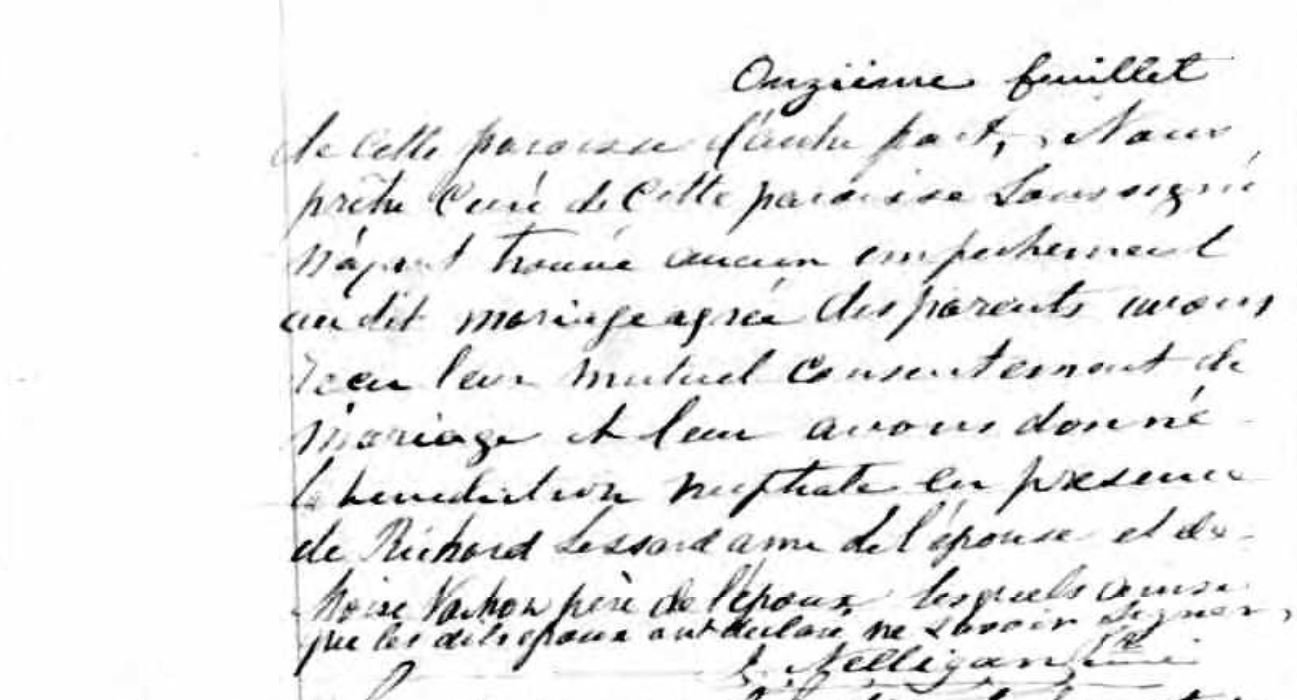 Onzième feuillet
de cette paroisse d'autre part, Nous
prêtre Curé de Cette paroisse Soussigné
n'ayant trouvé aucun empechement
au dit mariage agréé des parents avons
recu leur mutuel Consentement de
Mariage et leur avons donné
la benediction nuptiale en présence
de Richard Lessard ami de l'épouse et de
Moise Vachon père de l'époux lesquels ainsi
que les dits époux ont declaré ne savoir signer,
Nelligan Ptre